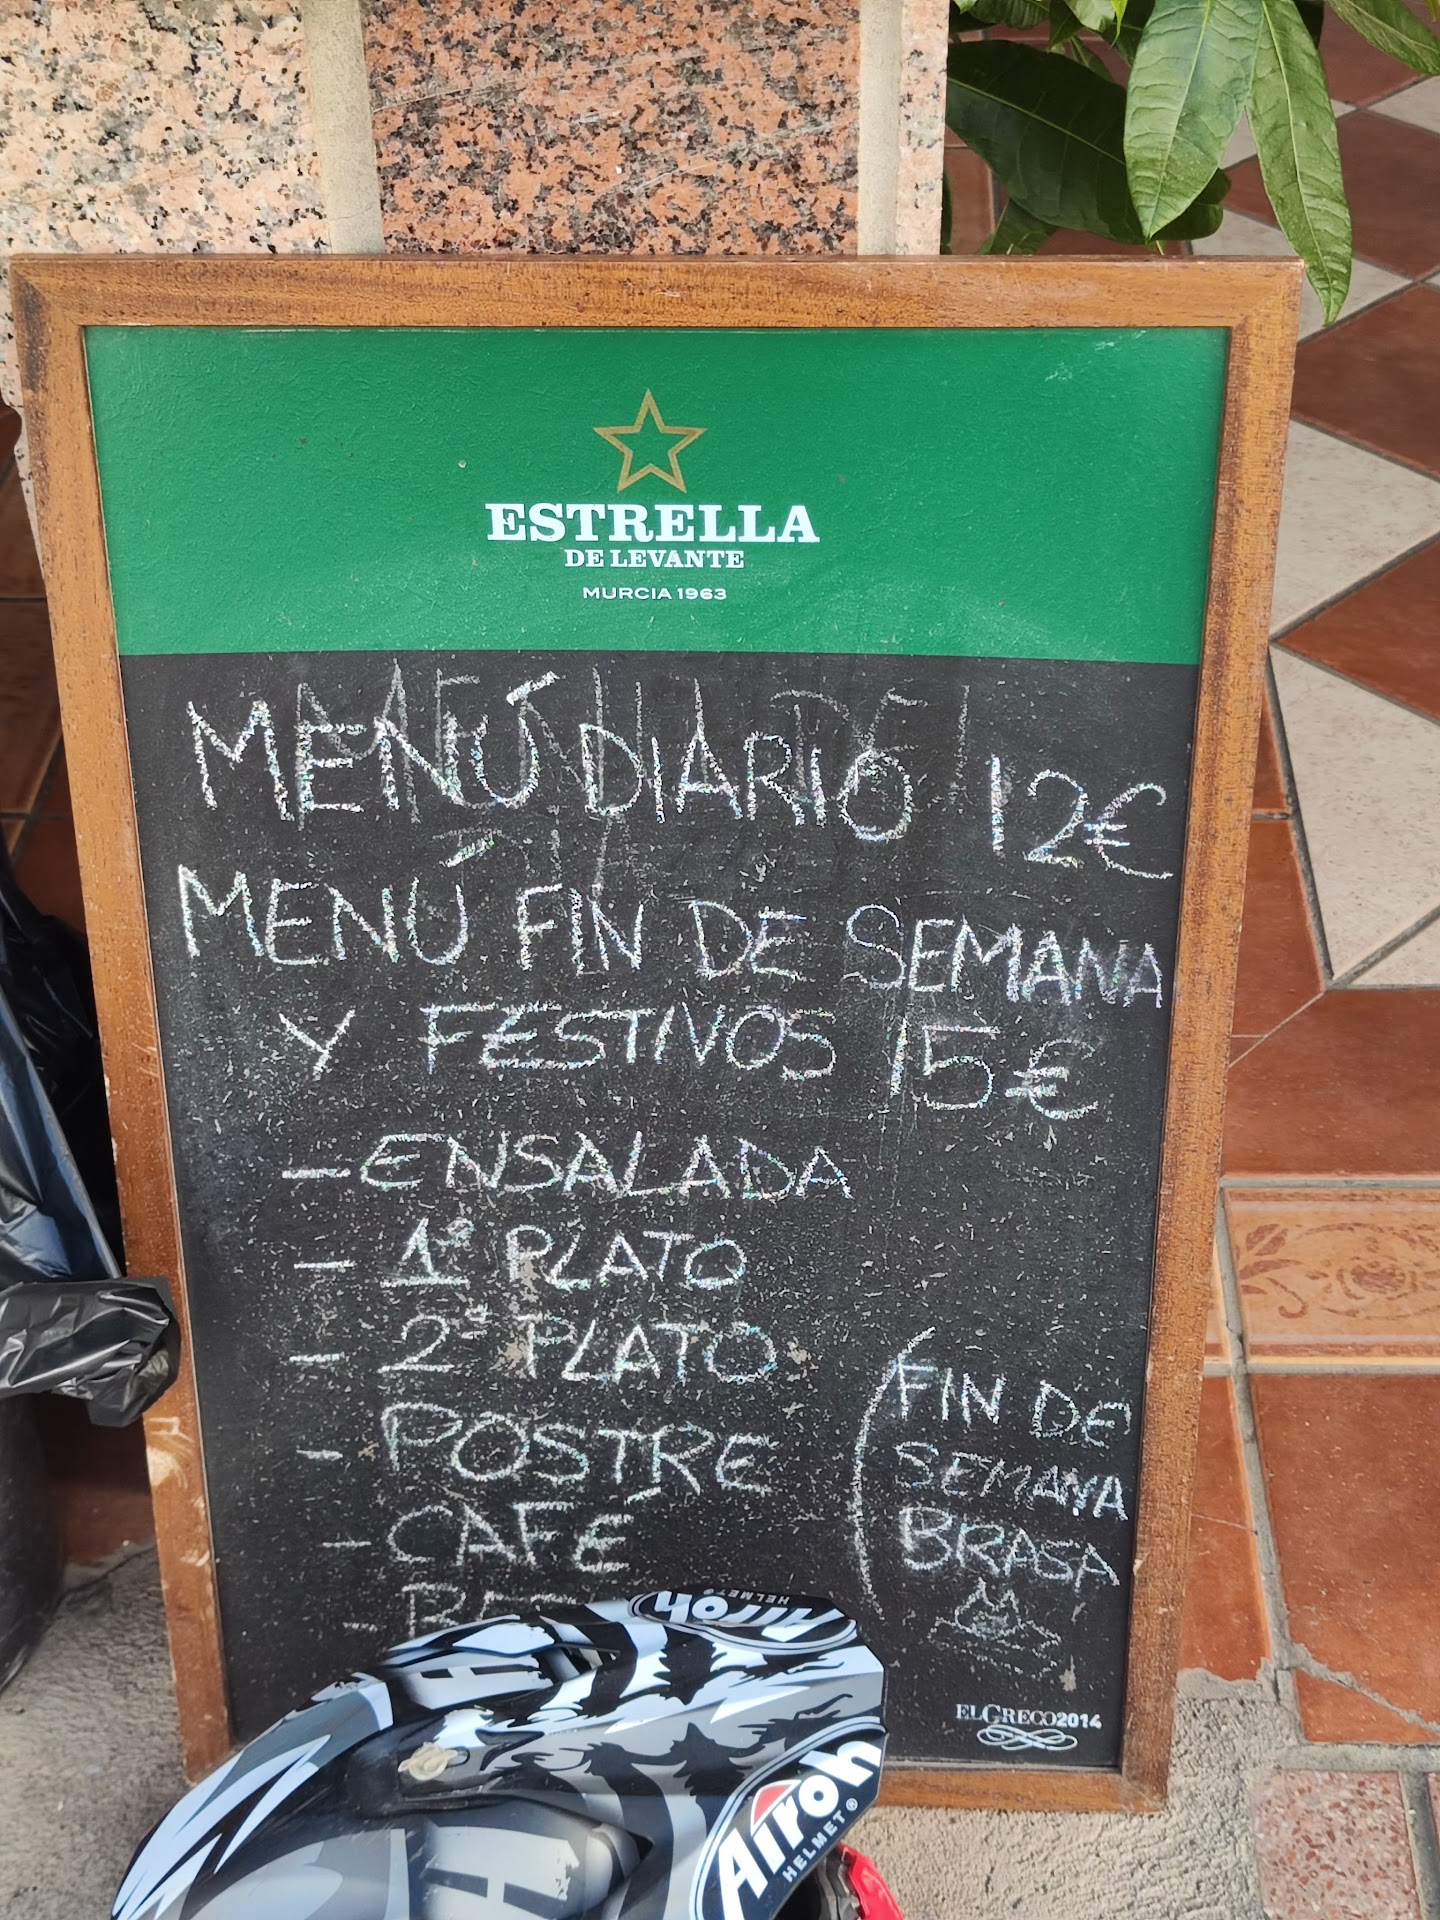 ESTRELLA
DE LEVANTE
MURCIA 1963
MENÚ DIARIO 12€
MENÚ FIN DE SEMANA
Y FESTIVOS 15€
- ENSALADA
- 1º PLATO
- 2º PLATO
- POSTRE
- CAFÉ
(FIN DE
SEMANA
BRASA
ELGRECO2014
Airoh
HELMET®
Airoh
HELMET®